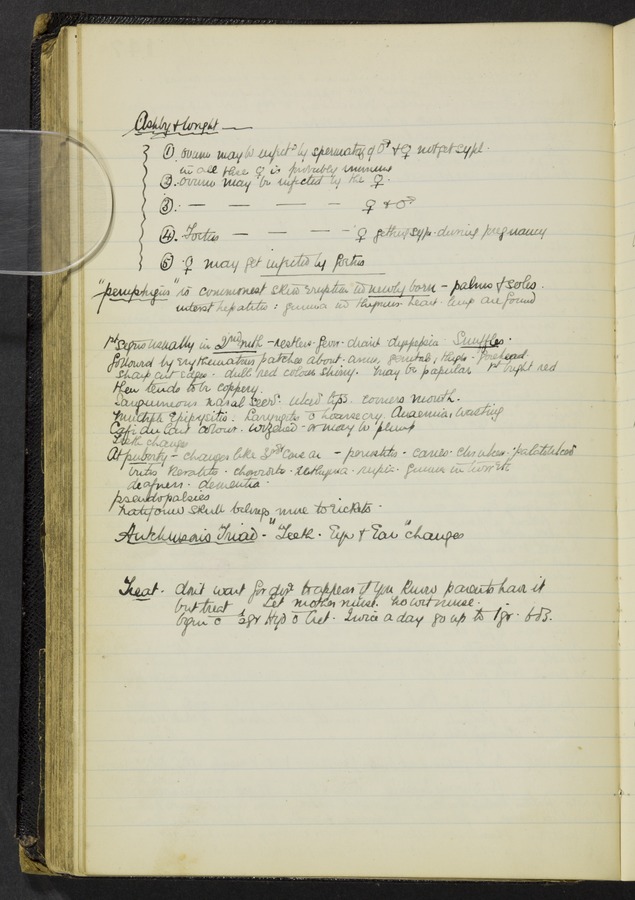 Ashby & Wright —
① ovum may be infect^d by spermatoz of ♂ & ♀ not get syph.
in all these ♀ is probably immune
② ovum may be infected by the ♀.
③ — — — — ♀ & ♂
④ Foetus — — — ♀ getting syph. during pregnancy
⑤ ♀ may get infected by foetus
"pemphigus" is commonest skin eruption in newly born - palms & soles.
interst hepatitis: gumma in thymus heart lungs are found
1st signs usually in 2nd mth - restless fever diarr dyspepsia Snuffles.
followed by erythematous patches about anus, genitals, thighs - forehead.
sharp cut edges - dull red colour shiny. may be papular 1st bright red
then tends to be coppery.
Sanguineous nasal ulcers lips. corners mouth.
Multiple Epiphysitis. Laryngitis c hoarse cry. Anaemia, wasting
Café au lait colour. wizened - or may be plump
Teeth changes
At puberty - changes like - periostitis - caries - palatal
Keratitis - choroiditis - ecthyma - rupia - gumma in
deafness - dementia
pseudopalsies
natiform skull belongs more to rickets.
Hutchinsons Triad - "Teeth. Eye & Ear" changes
Treat. don't wait for dis^e to appear if you know parents have it
but treat Let mother nurse. no wet nurse.
begin c ½gr Hyd c Cret. Twice a day go up to 1gr.